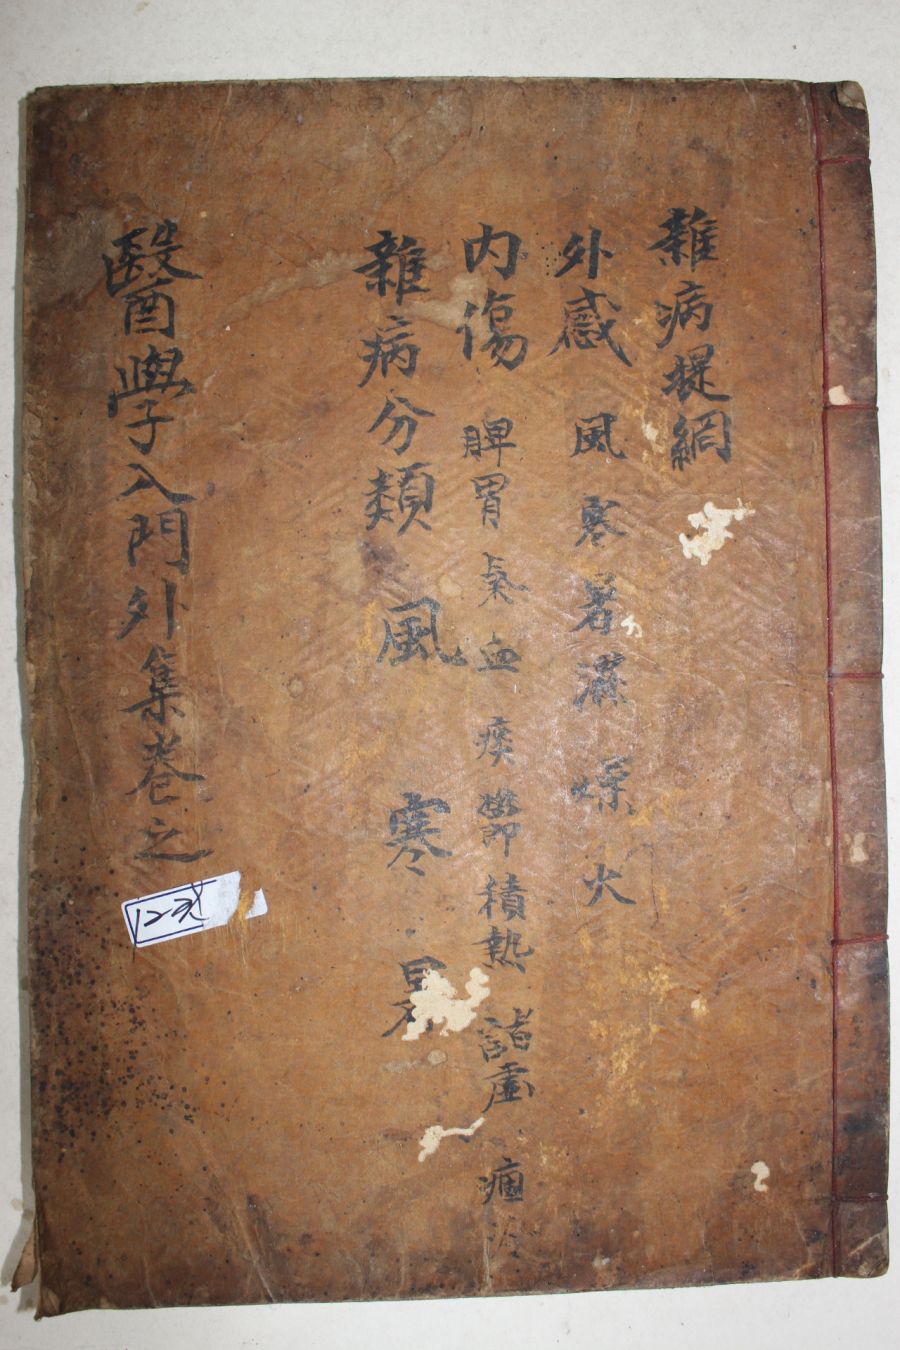 雜病提綱
外感 風寒暑濕燥火
內傷 脾胃氣血痰鬱積熱諸虛痼冷
雜病分類 風寒暑
醫學入門外集卷之
12-3